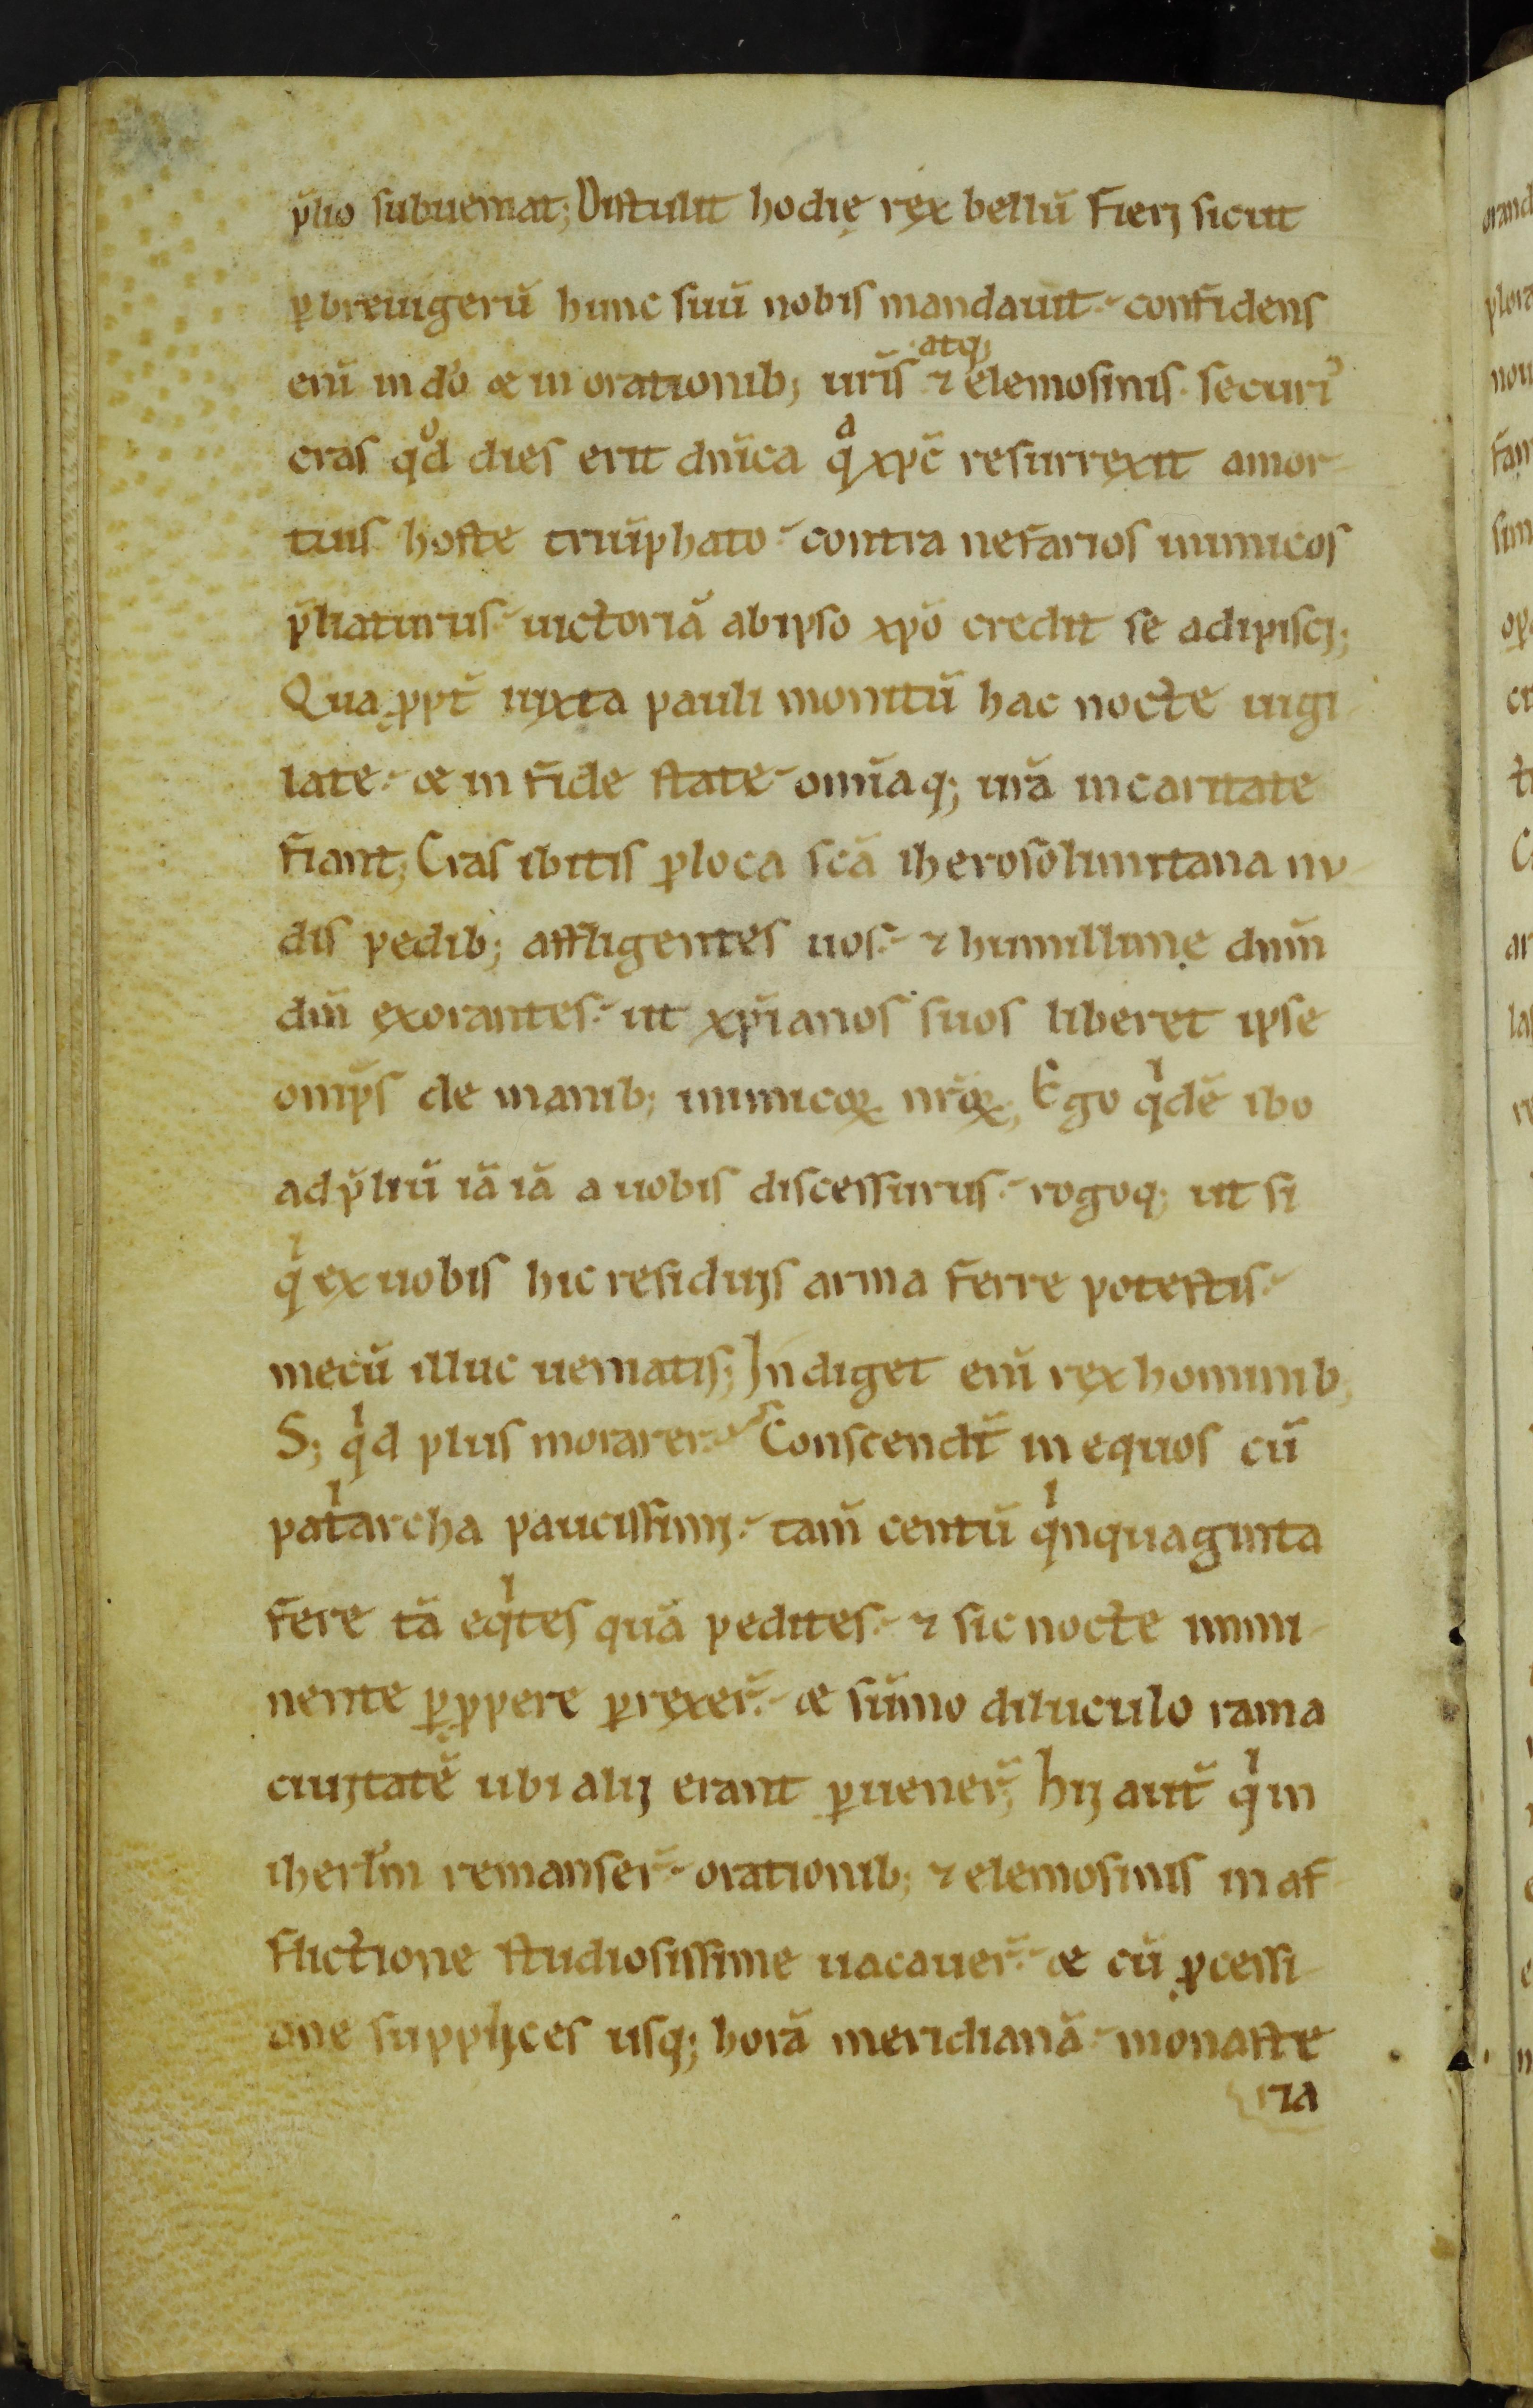 p̄lio subueniat; Distulit hodie rex bellū fieri sicut
ꝑ breuigerū hunc suū nobis mandauit. confidens
eni̅ in do̅ & in orationib; ur̄is ⁊ elemosinis. securi᾽
atq;
cras qͦd dies erit dn̄ica qᵃ xp̄c resurrexit a mor
tuis hoste triūphato. contra nefarios inimicos
p̄liaturus. uictoriā ab ipso xp̄o credit se adipisci;
Qua ꝓpt̄ iuxta pauli monitū hac nocte uigi
late. & in fide state. omīaq; ur̄a in caritate
fiant; Cras ibitis ꝑ loca sc̄a iherosolimitana nu
dis pedib; affligentes uos. ⁊ humillime dn̄m
dm̄ exorantes. ut xp̄ianos suos liberet ipse
omp̄s de manib; inimicoꝝ nr̄oꝝ; Ego qⁱdē ibo
ad p̄liū iā iā a uobis discessurus. rogoq; ut si
qⁱ ex uobis hic residuis arma ferre potestis.
mecū illuc ueniatis; Indiget eni̅ rex hominib;
S; qⁱd plus morarer. Conscendt̄ in equos cū
patⁱarcha paucissimi. tam̄ centū qⁱnquaginta
fere tā eqⁱtes quā pedites. ⁊ sic nocte immi
nente ꝑꝓpere ꝑrexer̄. & sūmo diluculo rama
ciuitatē ubi alij erant ꝑuener̄; Hij aut̄ qⁱ in
iherl̄m remanser̄. orationib; ⁊ elemosinis in af
flictione studiosissime uacauer̄. & cū ꝓcessi
one supplices usq; horā meridianā. monaste
ria